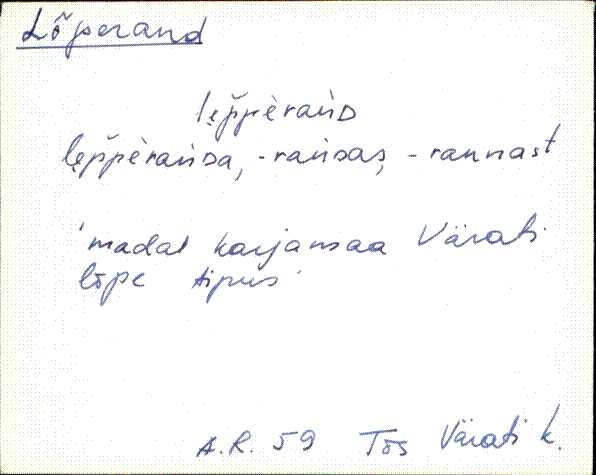 Lõperand
lęp̆pèrańᴅ
lęp̆pèrańᴅa, -rańᴅas, -rannast
'madal karjamaa Värati
lõpe tipus'
A.R. 59 Tõs Värati k.